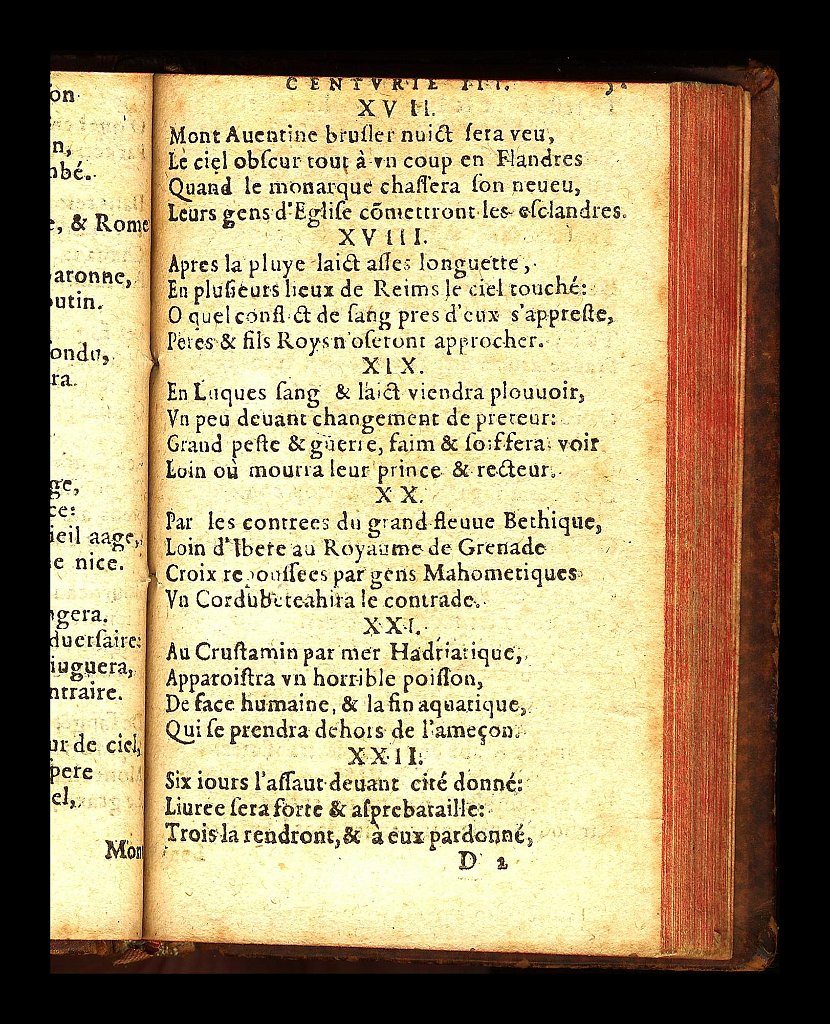 on
n,
bé.
e, & Rome
aronne,
outin.
ondu,
ra.
ge,
ce:
ieil aage,
e nice.
gera.
duerſaire:
iuguera,
ntraire.
ur de ciel,
pere
el,
Mon
CENTVRIE III.
XVII.
Mont Auentine bruſler nuict ſera veu,
Le ciel obſcur tout à vn coup en Flandres
Quand le monarque chaſſera ſon neueu,
Leurs gens d'Egliſe cõmettront les eſclandres.
XVIII.
Apres la pluye laict aſſes longuette,
En pluſieurs lieux de Reims le ciel touché:
O quel conflict de ſang pres d'eux s'appreſte,
Peres & fils Roys n'oſeront approcher.
XIX.
En Luques ſang & laict viendra plouuoir,
Vn peu deuant changement de preteur:
Grand peſte & guerre, faim & ſoif fera voir
Loin où mourra leur prince & recteur.
XX.
Par les contrees du grand fleuue Bethique,
Loin d'Ibere au Royaume de Grenade
Croix repouſſees par gens Mahometiques
Vn Cordube trahira le contrade.
XXI.
Au Cruſtamin par mer Hadriatique,
Apparoiſtra vn horrible poiſſon,
De face humaine, & la fin aquatique,
Qui ſe prendra dehors de l'ameçon.
XXII.
Six iours l'aſſaut deuant cité donné:
Liuree ſera forte & aſpre bataille:
Trois la rendront, & à eux pardonné,
D 2